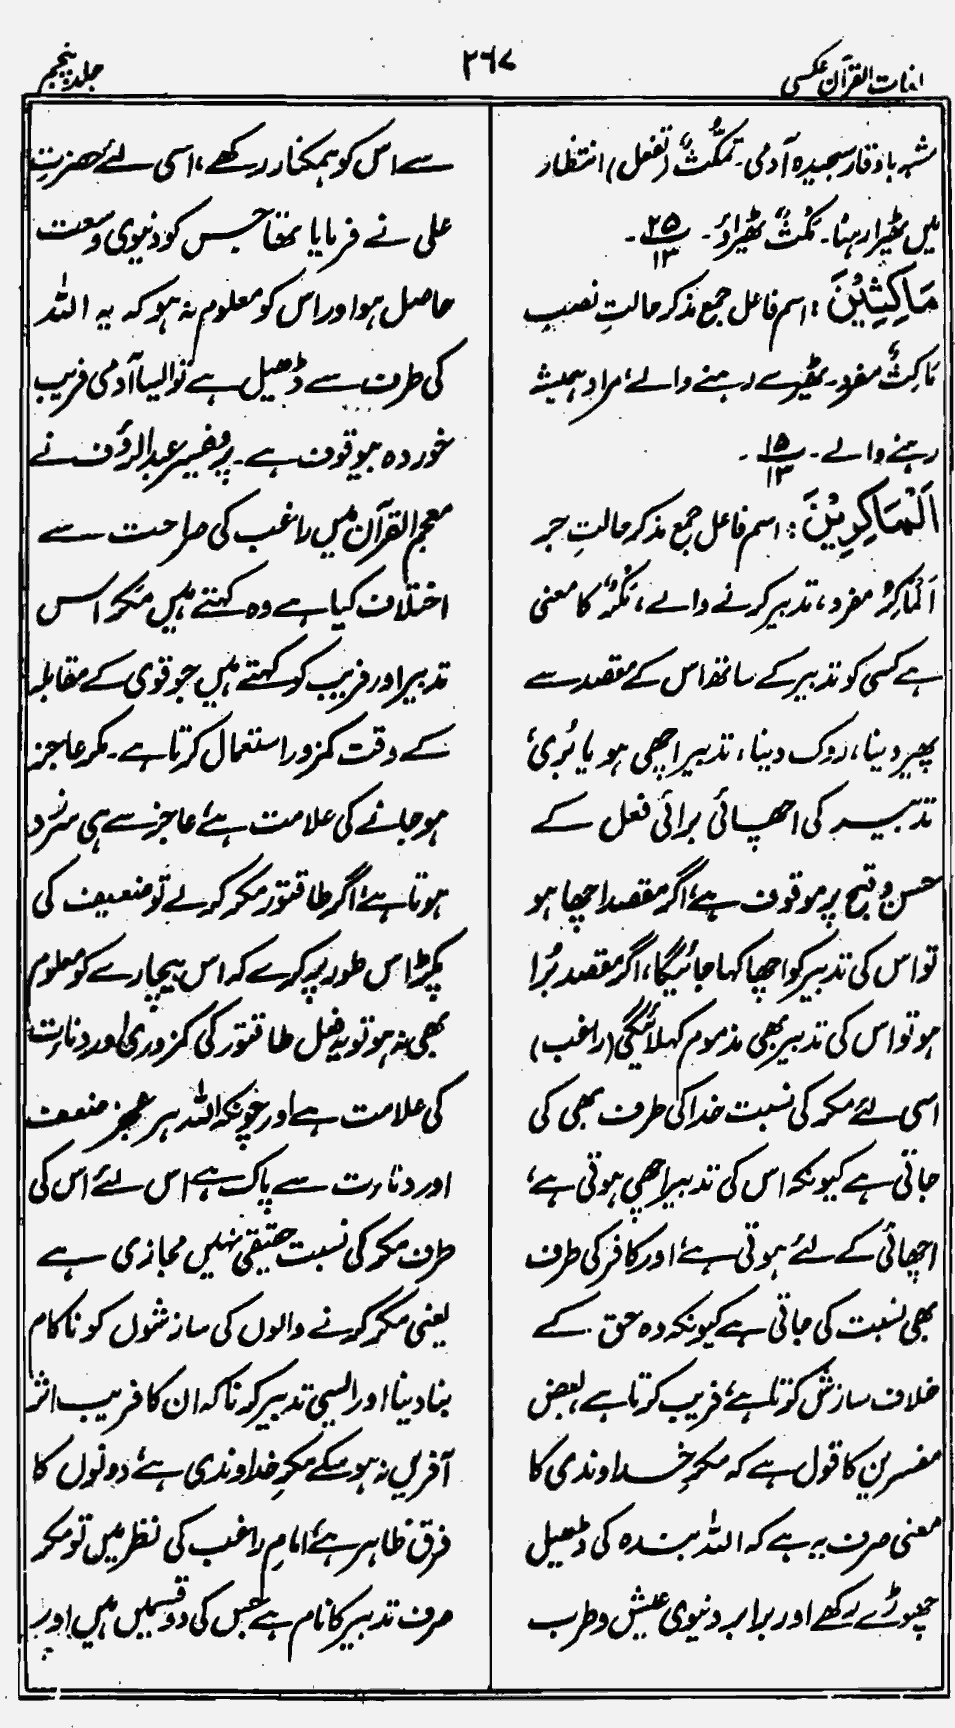 لغات القرآن عکسی
۲۶۷
جلد پنجم
شہر باوقار سجیدہ آدمی۔ تَمَکُّثٌ (تفعل) انتظار
میں ٹھیرا رہنا۔ مُکْثٌ ٹھیراؤ۔ ۲۵/۱۳۔
مَاکِثِیْنَ : اسم فاعل جمع مذکر حالتِ نصب
مَاکِثٌ مفرد۔ ٹھیرے رہنے والے، مراد ہمیشہ
رہنے والے۔ ۱۵/۱۳۔
اَلْمَاکِرِیْنَ : اسم فاعل جمع مذکر حالتِ جر
اَلْمَاکِرُ مفرد، تدبیر کرنے والے، مَکْرٌ کا معنی
ہے کسی کو تدبیر کے ساتھ اس کے مقصد سے
پھیر دینا، روک دینا، تدبیر اچھی ہو یا بُری،
تدبیر کی اچھائی برائی فعل کے
حسن و قبح پر موقوف ہے، اگر مقصد اچھا ہو
تو اس کی تدبیر کو اچھا کہا جائیگا، اگر مقصد بُرا
ہو تو اس کی تدبیر بھی مذموم کہلائیگی (راغب)
اسی لئے مکر کی نسبت خدا کی طرف بھی کی
جاتی ہے کیونکہ اس کی تدبیر اچھی ہوتی ہے،
اچھائی کے لئے ہوتی ہے، اور کافر کی طرف
بھی نسبت کی جاتی ہے کیونکہ وہ حق کے
خلاف سازش کرتا ہے، فریب کرتا ہے، بعض
مفسرین کا قول ہے کہ مکرِ خداوندی کا
معنی صرف یہ ہے کہ اللہ بندہ کی ڈھیل
چھوڑے رکھے اور برابر دنیوی عیش و طرب
سے اس کو ہمکنار رکھے، اسی لئے حضرت
علی نے فرمایا تھا جس کو دنیوی وسعت
حاصل ہو اور اس کو معلوم نہ ہو کہ یہ اللہ
کی طرف سے ڈھیل ہے تو ایسا آدمی فریب
خوردہ بیوقوف ہے۔ پروفیسر عبد الرؤف نے
معجم القرآن میں راغب کی صراحت سے
اختلاف کیا ہے وہ کہتے ہیں مَکر اس
تدبیر اور فریب کو کہتے ہیں جو قوی کے مقابلہ
کے وقت کمزور استعمال کرتا ہے۔ مکر عاجز
ہو جانے کی علامت ہے، عاجز سے ہی سرزد
ہوتا ہے، اگر طاقتور مکر کرے تو ضعیف کی
پکڑ اس طور پر کرے کہ اس بیچارے کو معلوم
بھی نہ ہو تو یہ فعل طاقتور کی کمزوری اور دناءت
کی علامت ہے اور چونکہ اللہ ہر عجز ضعف
اور دناءت سے پاک ہے اس لئے اس کی
طرف مکر کی نسبت حقیقی نہیں مجازی ہے
یعنی مکر کرنے والوں کی سازشوں کو ناکام
بنا دینا اور ایسی تدبیر کرنا کہ ان کا فریب اثر
آفریں نہ ہو سکے مکرِ خداوندی ہے، دونوں کا
فرق ظاہر ہے، امام راغب کی نظر میں تو مکر
صرف تدبیر کا نام ہے جس کی دو قسمیں ہیں اور